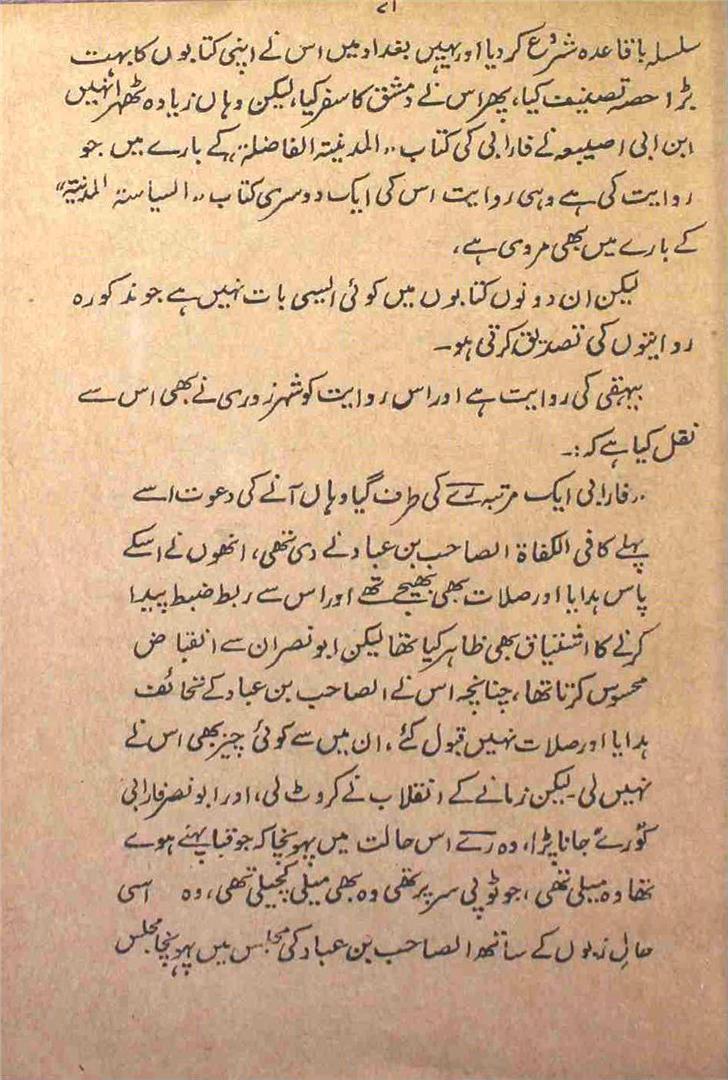 ۷۱
سلسلہ باقاعدہ شروع کر دیا اور یہیں بغداد میں اس نے اپنی کتابوں کا بہت
بڑا حصہ تصنیف کیا، پھر اس نے دمشق کا سفر کیا، لیکن وہاں زیادہ ٹھہرا نہیں
ابن ابی اصیبعہ نے فارابی کی کتاب ،، المدینتہ الفاضلتہ، کے بارے میں جو
روایت کی ہے وہی روایت اس کی ایک دوسری کتاب ،، السیاستہ المدنیتہ"
کے بارے میں بھی مروی ہے،
لیکن ان دونوں کتابوں میں کوئی ایسی بات نہیں ہے جو مذکورہ
روایتوں کی تصدیق کرتی ہو۔
بیہقی کی روایت ہے اور اس روایت کو شہر زوری نے بھی اس سے
نقل کیا ہے کہ:۔
،، فارابی ایک مرتبہ رے کی طرف گیا وہاں آنے کی دعوت اسے
پہلے کافی الکفاۃ الصاحب بن عباد نے دی تھی، انھوں نے اسکے
پاس ہدایا اور صلات بھی بھیجے تھے اور اس سے ربط ضبط پیدا
کرنے کا اشتیاق بھی ظاہر کیا تھا لیکن ابو نصر ان سے انقباض
محسوس کرتا تھا، چنانچہ اس نے الصاحب بن عباد کے تحائف
ہدایا اور صلات نہیں قبول کئے، ان میں سے کوئی چیز بھی اس نے
نہیں لی۔ لیکن زمانے کے انقلاب نے کروٹ لی، اور ابو نصر فارابی
کو رے جانا پڑا، وہ رے اس حالت میں پہونچا کہ جو قبا پہنے ہوے
تھا وہ میلی تھی، جو ٹوپی سر پر تھی وہ بھی میلی کچیلی تھی، وہ اسی
حال زبوں کے ساتھ الصاحب بن عباد کی مجلس میں پہونچا مجلس